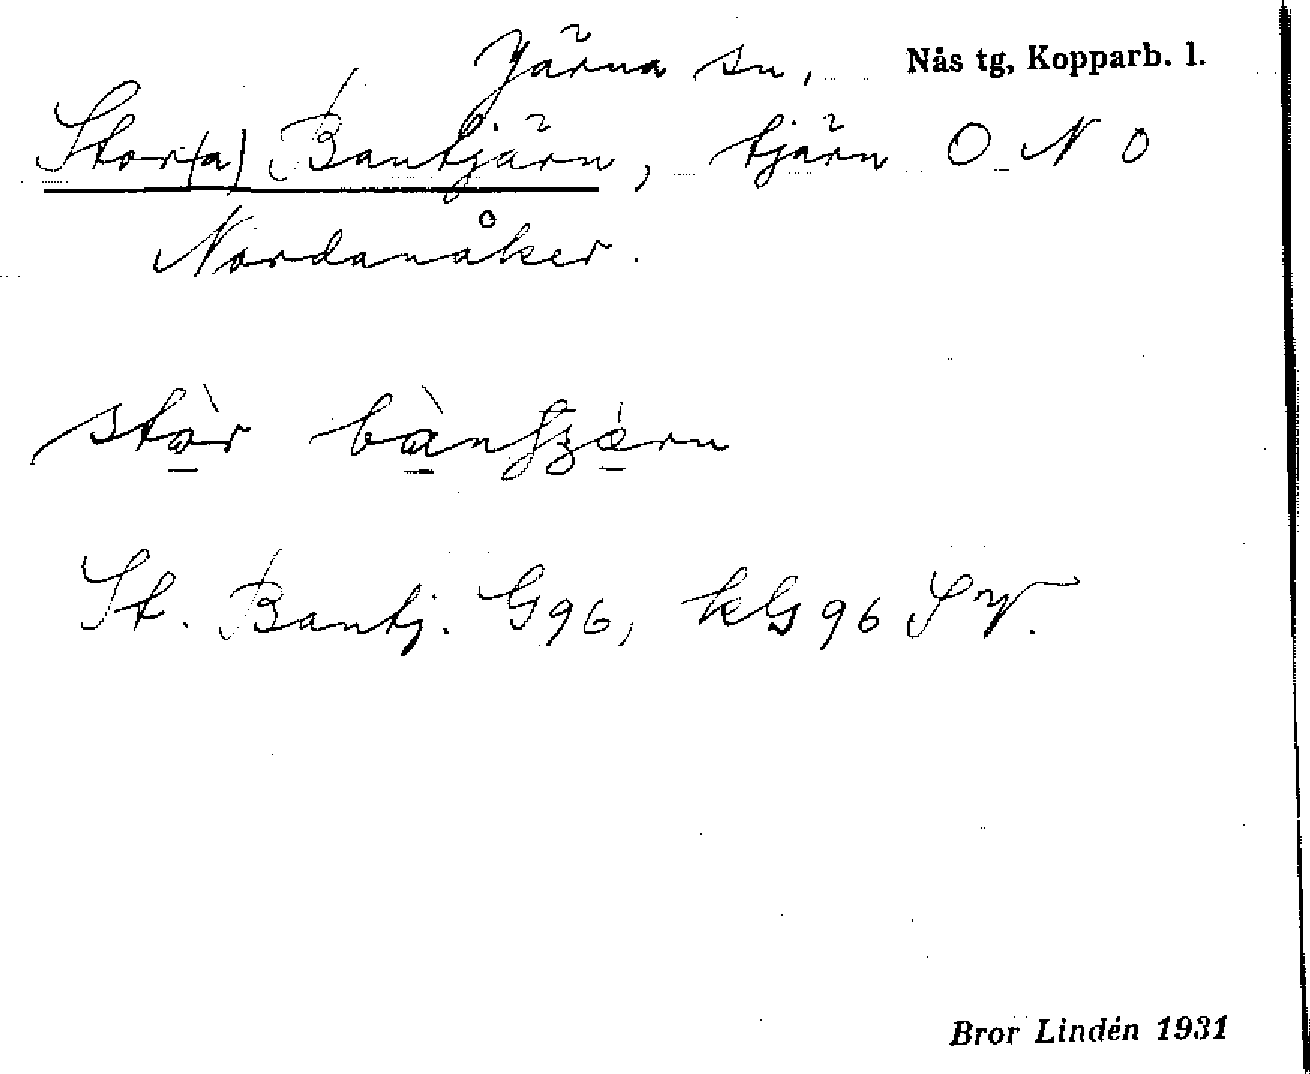 Järna sn, Nås tg, Kopparb. l.
Stor(a) Bantjärn, tjärn O N O
Nordanåker.
stòr
St. Bantj. G96, kG96 SV.
Bror Lindén 1931